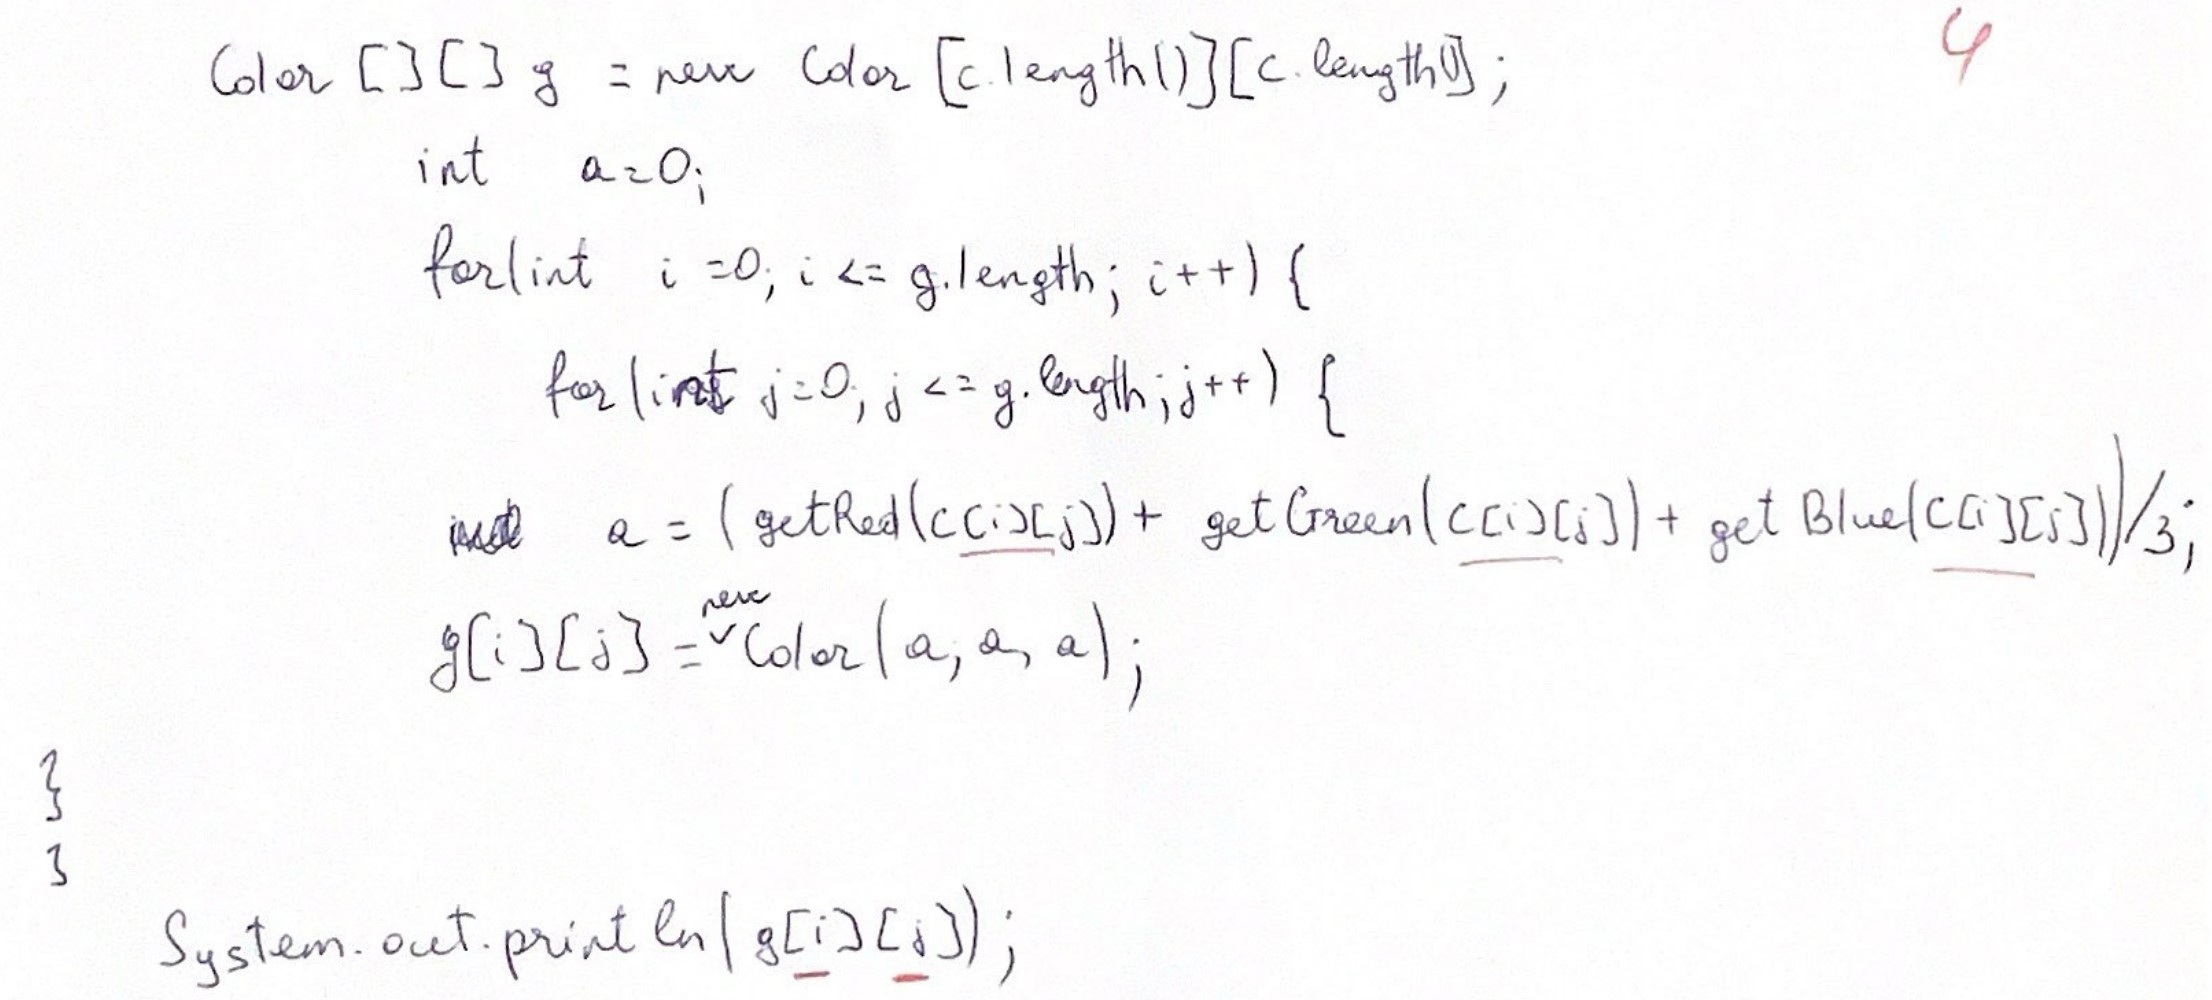 4
Color [][] g = new Color [c.length()][c.length()];
int a=0;
for(int i=0; i <= g.length; i++) {
for(int j=0; j <= g.length; j++) {
a = (getRed(c[i][j]) + getGreen(c[i][j]) + getBlue(c[i][j]))/3;
new
g[i][j] = Color(a, a, a);
}
}
System.out.println(g[i][j]);